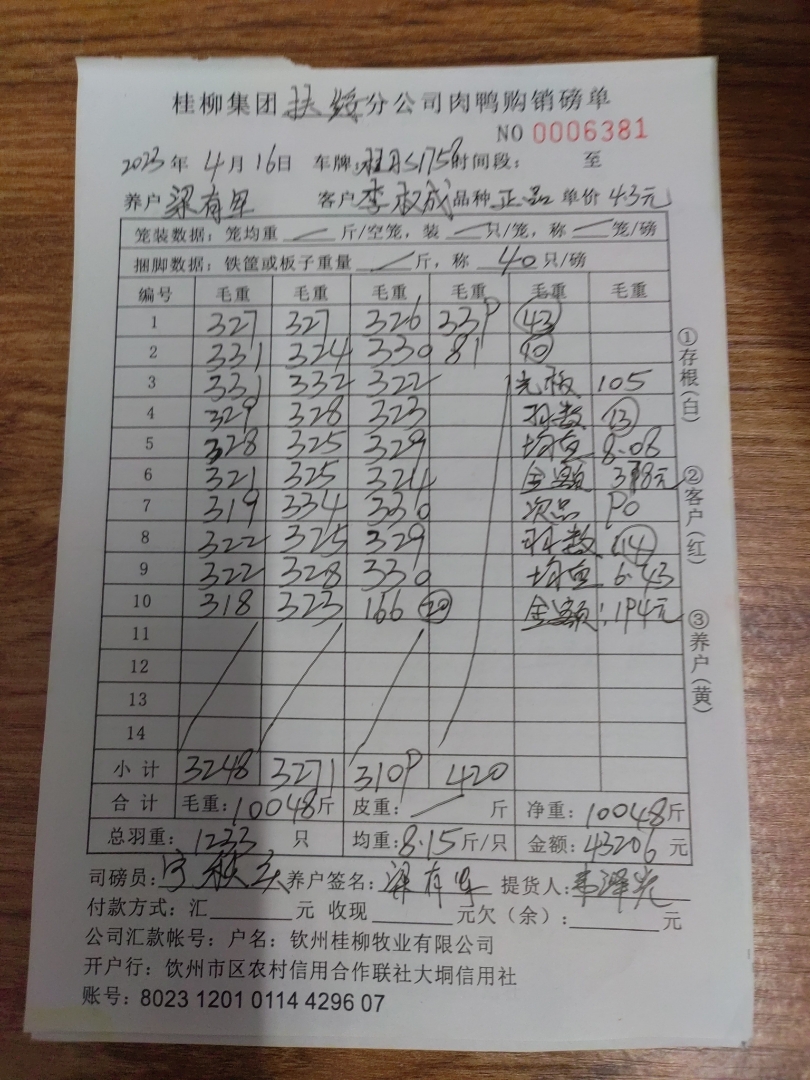 桂柳集团扶绥分公司肉鸭购销磅单
NO 0006381
2023年4月16日 车牌: 时间段: 至
养户 梁有 客户 李权成 品种 正品 单价 4.3元
笼装数据: 笼均重 — 斤/空笼, 装 — 只/笼, 称 — 笼/磅
捆脚数据: 铁筐或板子重量 — 斤, 称 40 只/磅
编号 毛重 毛重 毛重 毛重 毛重 毛重
1 327 327 326 339 43
2 331 324 330 81 10
3 331 332 322 光板 105
4 329 328 323 羽数 13
5 328 325 329 均重 8.08
6 321 325 324 金额 398元
7 319 334 330 次品 90
8 322 325 329 羽数 14
9 322 328 330 均重 6.43
10 318 323 166 20 金额: 194元
11
12
13
14
小计 3248 3271 3109 420
合计 毛重: 10048斤 皮重: — 斤 净重: 10048斤
总羽重: 1233 只 均重: 8.15斤/只 金额: 43206 元
司磅员: 养户签名: 梁有 提货人: 韦泽光
付款方式: 汇 元 收现 元欠(余): 元
公司汇款帐号: 户名: 钦州桂柳牧业有限公司
开户行: 钦州市区农村信用合作联社大垌信用社
账号: 8023 1201 0114 4296 07
①存根(白)
②客户(红)
③养户(黄)